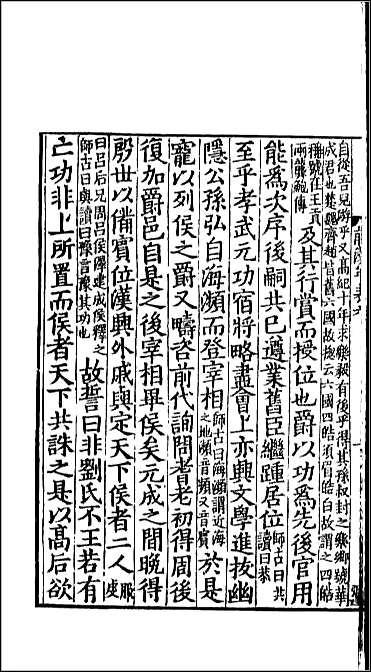 自從吾兒游乎又高紀十年求樂毅有後乎得其孫叔封之樂鄉號華
成君也楚魏齊趙皆舊六國故摠云六國四皓須眉皓白故謂之四皓
稱號在王貢兩龔鮑傳及其行賞而授位也爵以功爲先後官用
能爲次序後嗣共己遵業舊臣繼踵居位師古曰共讀曰恭
至乎孝武元功宿將略盡會上亦興文學進拔幽
隱公孫弘自海瀕而登宰相師古曰海瀕謂近海之地瀕音頻又音賓於是
寵以列侯之爵又疇咨前代詢問耆老初得周後
復加爵邑自是之後宰相畢侯矣元成之間晚得
殷世以備賓位漢興外戚與定天下侯者二人服虔
曰呂后兄周呂侯澤建成侯釋之師古曰與讀曰豫言豫其功也故誓曰非劉氏不王若有
亡功非上所置而侯者天下共誅之是以高后欲